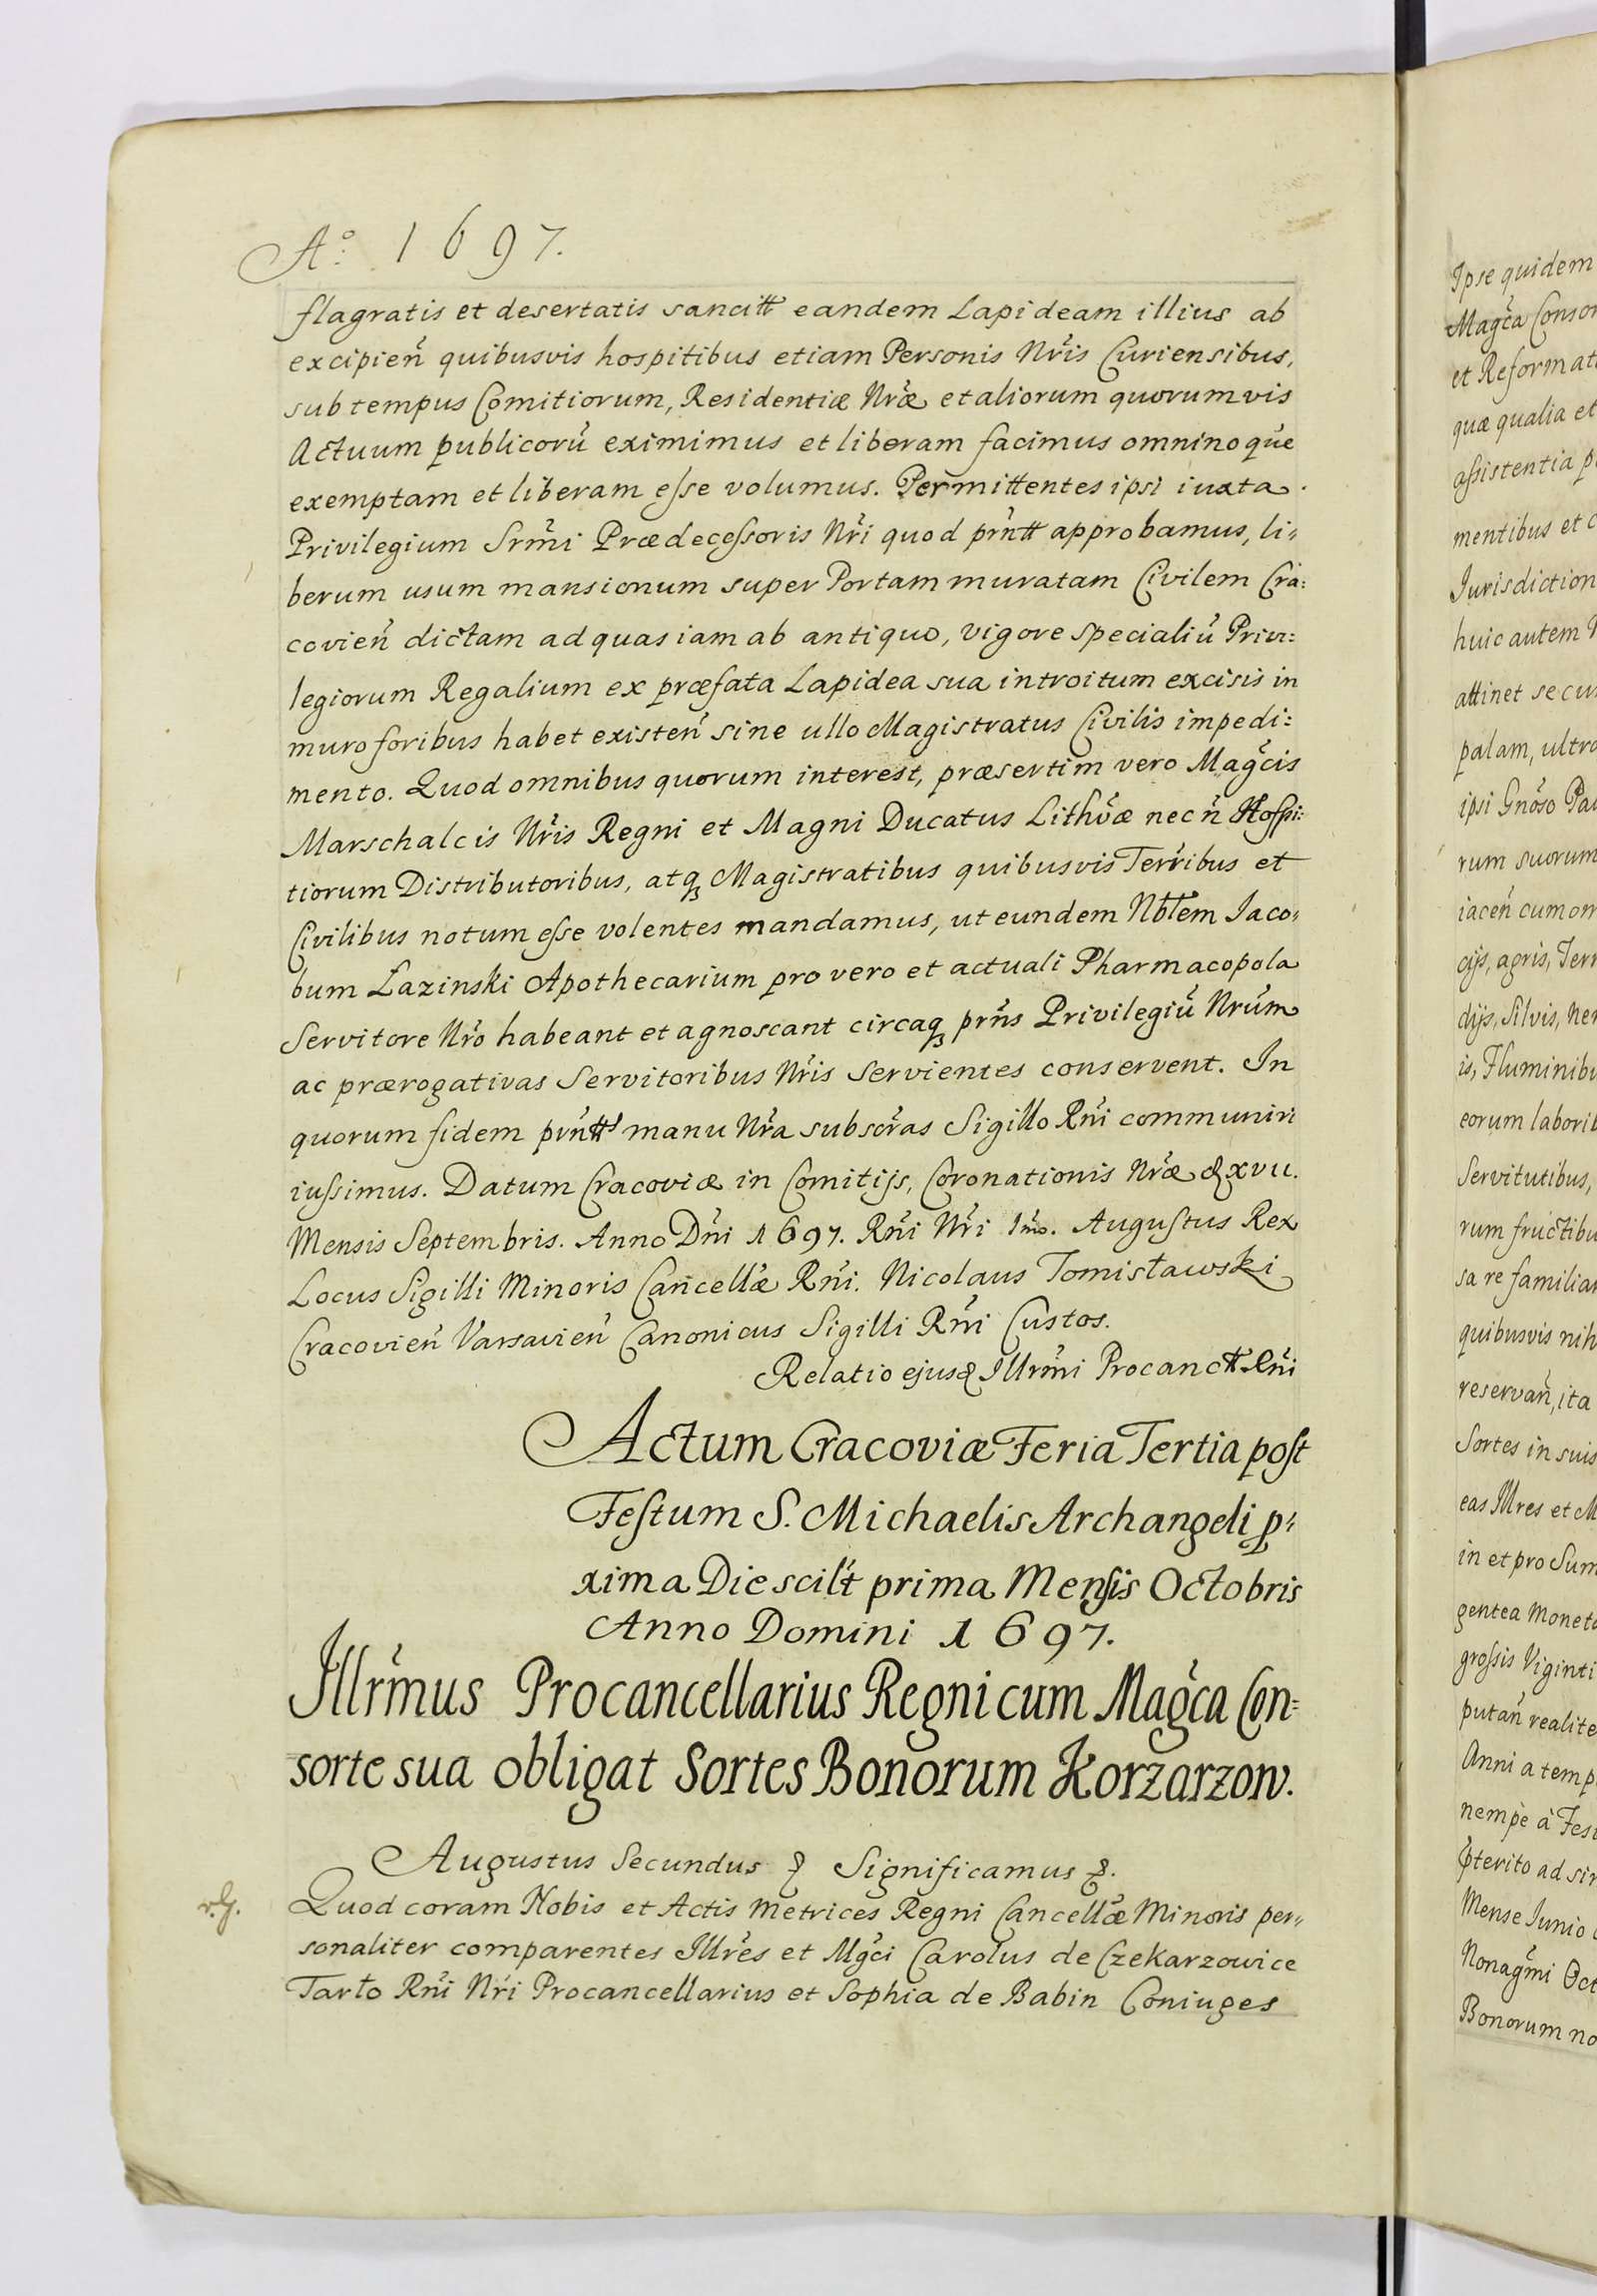 Aº: 1697.
flagratis et desertatis sancitt eandem Lapideam illius ab
excipien̄ quibusvis hospitibus etiam Personis Nr̃is Curiensibus,
sub tempus Comitiorum, Residentiæ Nr̃æ et aliorum quorumvis
Actuum publicorũ eximimus et liberam facimus omninoq́ue
exemptam et liberam eſse volumus. Permittentes ipsi iuxta
Privilegium Srm̃i Prædeceſsoris Nr̃i quod prñtt approbamus, li„
berum usum mansionum super Portam muratam Civilem Cra:
covien̄ dictam ad quas iam ab antiquo, vigore specialiũ Privi:
legiorum Regalium ex præfata Lapidea sua introitum excisis in
muro foribus habet existen̄ sine ullo Magistratus Civilis impedi:
mento. Quod omnibus quorum interest, præsertim vero Magc̃is
Marschalcis Nr̃is Regni et Magni Ducatus Lithṽæ nec ñ Hoſpi:
tiorum Distributoribus, atqꝫ Magistratibus quibusvis Terr̃ibus et
Civilibus notum eſse volentes mandamus, ut eundem Nbłem Iaco„
bum Łazinski Apothecarium pro vero et actuali Pharmacopola
Servitore Nr̃o habeant et agnoscant circaqꝫ prñs Privilegiũ Nrũm
ac prærogativas Servitoribus Nr̃is servientes conservent. In
quorum fidem prñtt manu Nr̃a subscr̃as Sigillo Rñi communiri
iuſsimus. Datum Cracoviæ in Comitijs, Coronationis Nr̃æ & XVII.
Mensis Septembris. Anno Dñi 1697. Rñi Nr̃i 1mo. Auguſtus Rex
Locus Sigilli Minoris Cancellæ̃ Rñi. Nicolaus Tomisławski
Cracovien̄ Varsavien̄ Canonicus Sigilli Rñi Custos.
Relatio ejusꝺ Illrm̃i Procanctt Rñi
Actum Cracoviæ Feria Tertia poſt
Feſtum S. Michaelis Archangeli p„
xima Die scilt́ prima Menſis Octobris
Anno Domini 1697.
Illrm̃us Procancellarius Regni cum Magc̃a Con=
sorte sua obligat Sortes Bonorum Korzarzow.
Augustus Secundus & Significamus &.
Quod coram Nobis et Actis Metrices Regni Cancellæ̃ Minoris per„
sonaliter comparentes Illr̃es et Mgc̃i Carolus de Czekarzowice
Tarło Rñi Nr̃i Procancellarius et Sophia de Babin Coniuges
Ipse quidem
Magc̃a Conso
et Reformat
quæ qualia et
aſsistentia p
mentibus et c
Iurisdiction
huic autem
attinet secu
palam, ultra
ipsi Gnõso Pa
rum suorum
iacen̄ cum om
cijs, agris, Terr
dijs, Silvis, Ne
is, Fluminibu
eorum laborib
Servitutibus,
rum fructibu
sa re familia
quibusvis nih
reservan̄, ita
Sortes in suis
eas Illres et M
in et pro Sum
gentea Moneta
groſsis Viginti
putan̄ realite
Anni a temp
nempè à Fes
pterito ad si
Mense Iunio
Nonagm̃i Oct
Bonorum no